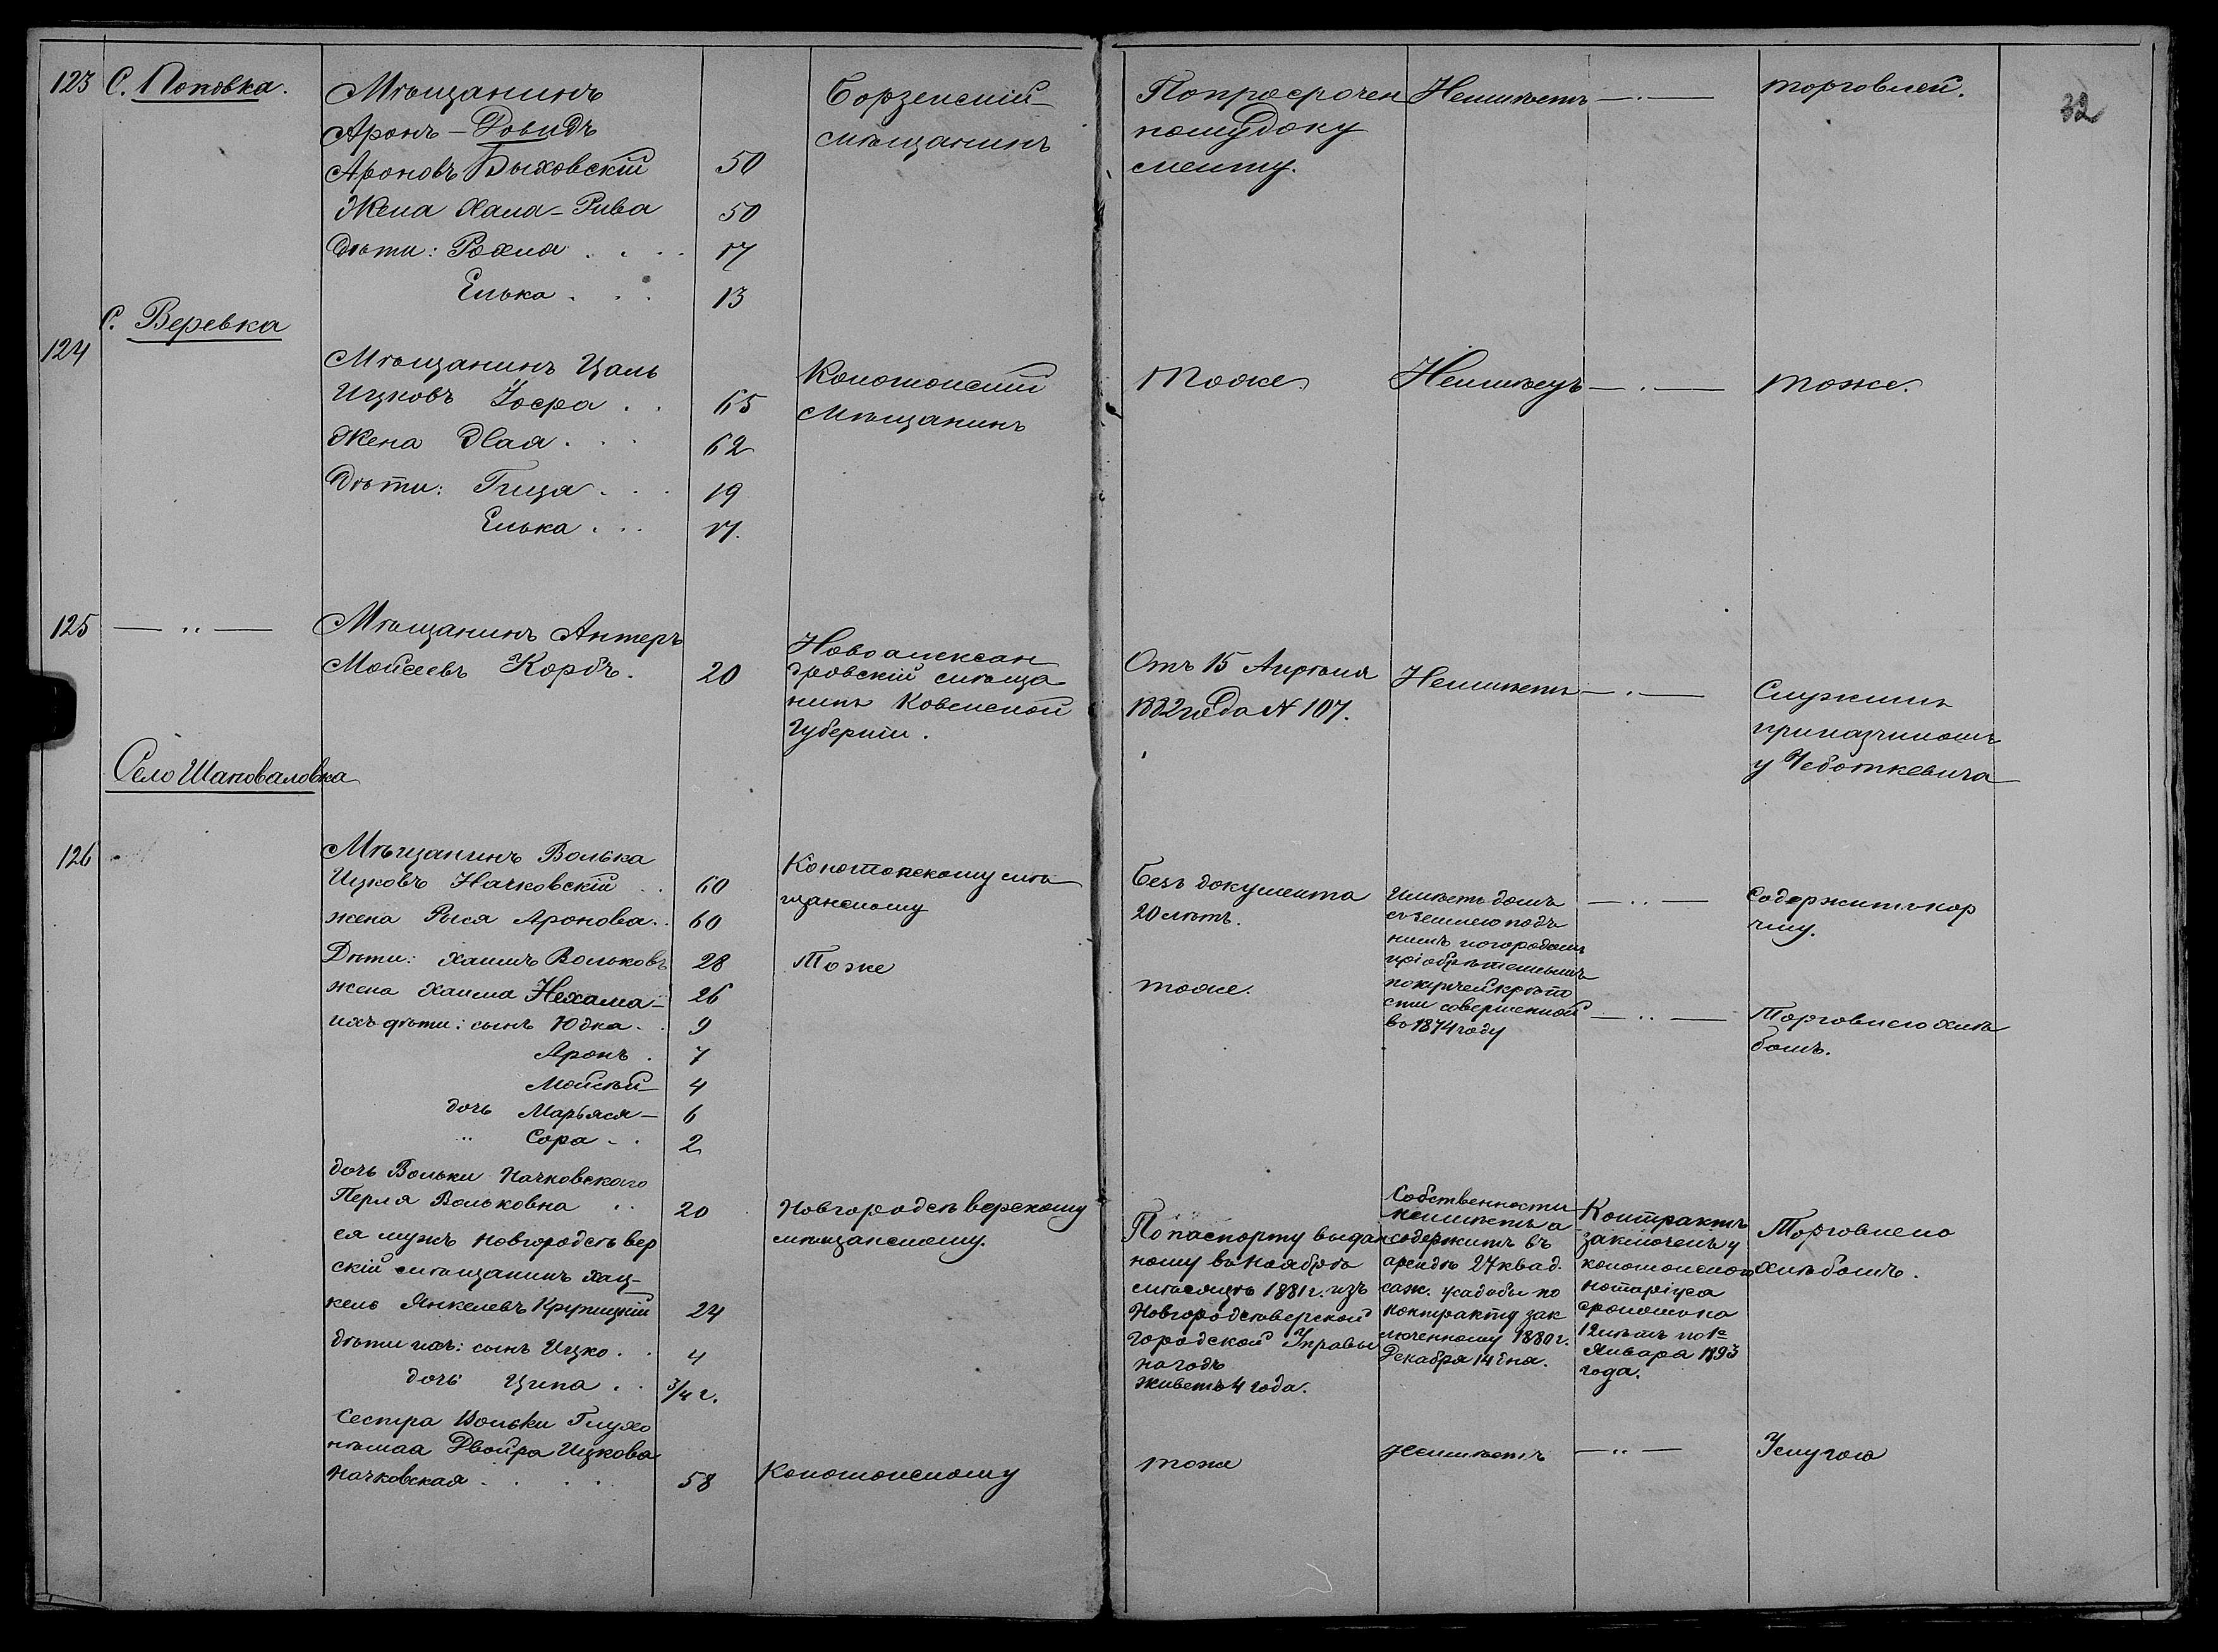 32
123 С. Поповка.
Мѣщанинъ
Аронъ-Довидъ
Ароновъ Быховскій 50
Жена Хана-Рива 50
Дѣти: Рохля . . . . 17
Елька . . . 13
Борзенскій
мѣщанинъ
Попросрочен
ному доку
менту.
Неимѣетъ —.—
торговлей.
С. Веревка
124
Мѣщанинъ Цаль
Ицковъ . . 65
Жена Хая . . . 62
Дѣти: . . . 19
Елька . . . 17.
Конотопскій
Мѣщанинъ
Тоже
Неимѣетъ —.—
тоже.
125 — " —
Мѣщанинъ Антеръ
Мойсеевъ Корбъ. 20
Новоалексан
дровскій мѣща
нинъ Ковенской
Губерніи.
Отъ 15 Апрѣля
1882 года № 107.
Неимѣетъ —.—
Служитъ
приказчикомъ
у Чеботкевича
Село Шаповаловка
126
Мѣщанинъ Волька
Ицковъ Начковскій . . 60
жена Рыся Аронова . . 60
Дѣти: Хаимъ Вольковъ 28
жена Хаима Нехама — 26
ихъ дѣти: сынъ Юдка . . 9
Аронъ . 7
Мойсѣй 4
дочь Марьяся — 6
" Сора . . 2
дочь Вольки Начковскаго
Перля Вольковна . . 20
ея мужъ новгородсѣвер
скій мѣщанинъ Хац-
кель Янкелевъ Крупицкій 24
дѣти ихъ: сынъ Ицко . . 4
дочь Ципа . . 3/4 г.
Сестра Вольки Глухо
нѣмая Двойра Ицкова
Начковская . . . . 58
Конотопскому мѣ
щанскому
Тоже
Новгородсѣверскому
мѣщанскому.
Конотопскому
Безъ документа
20 лѣтъ.
тоже.
По паспорту выдан
ному въ Ноябрѣ
мѣсяцѣ 1881 г. изъ
Новгородсѣверской
Городской Управы
на годъ
живетъ 4 года.
тоже
Имѣетъ домъ
съ землею подъ
нимъ и огородомъ
пріобрѣтеннымъ
по купчей крѣпо
сти совершенной
въ 1874 году
Собственности
неимѣетъ а
содержитъ въ
арендѣ 27 квад.
саж. усадьбы по
контракту зак
люченному 1880 г.
Декабря 14 дня.
неимѣетъ
— .. —
— .. —
Контрактъ
заключенъ у
конотопского
нотаріуса
срокомъ на
12 лѣтъ по 1е
Января 1893
года.
— .. —
Содержитъ кор
чму.
Торговлею хлѣ
бомъ.
Торговлею
хлѣбомъ.
Услугою